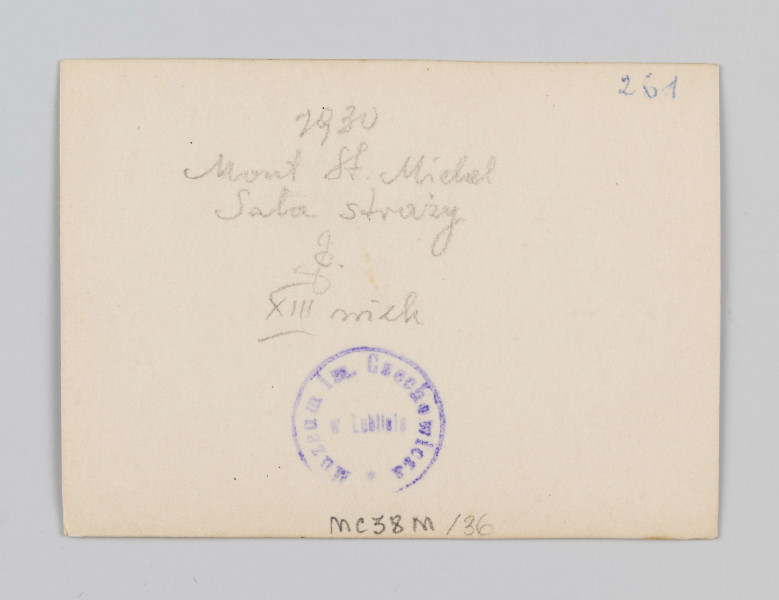 261
1930
Mont St. Michel
Sala straży
XIII wiek
Muzeum Im. Czechowicza
w Lublinie
MC38M/36